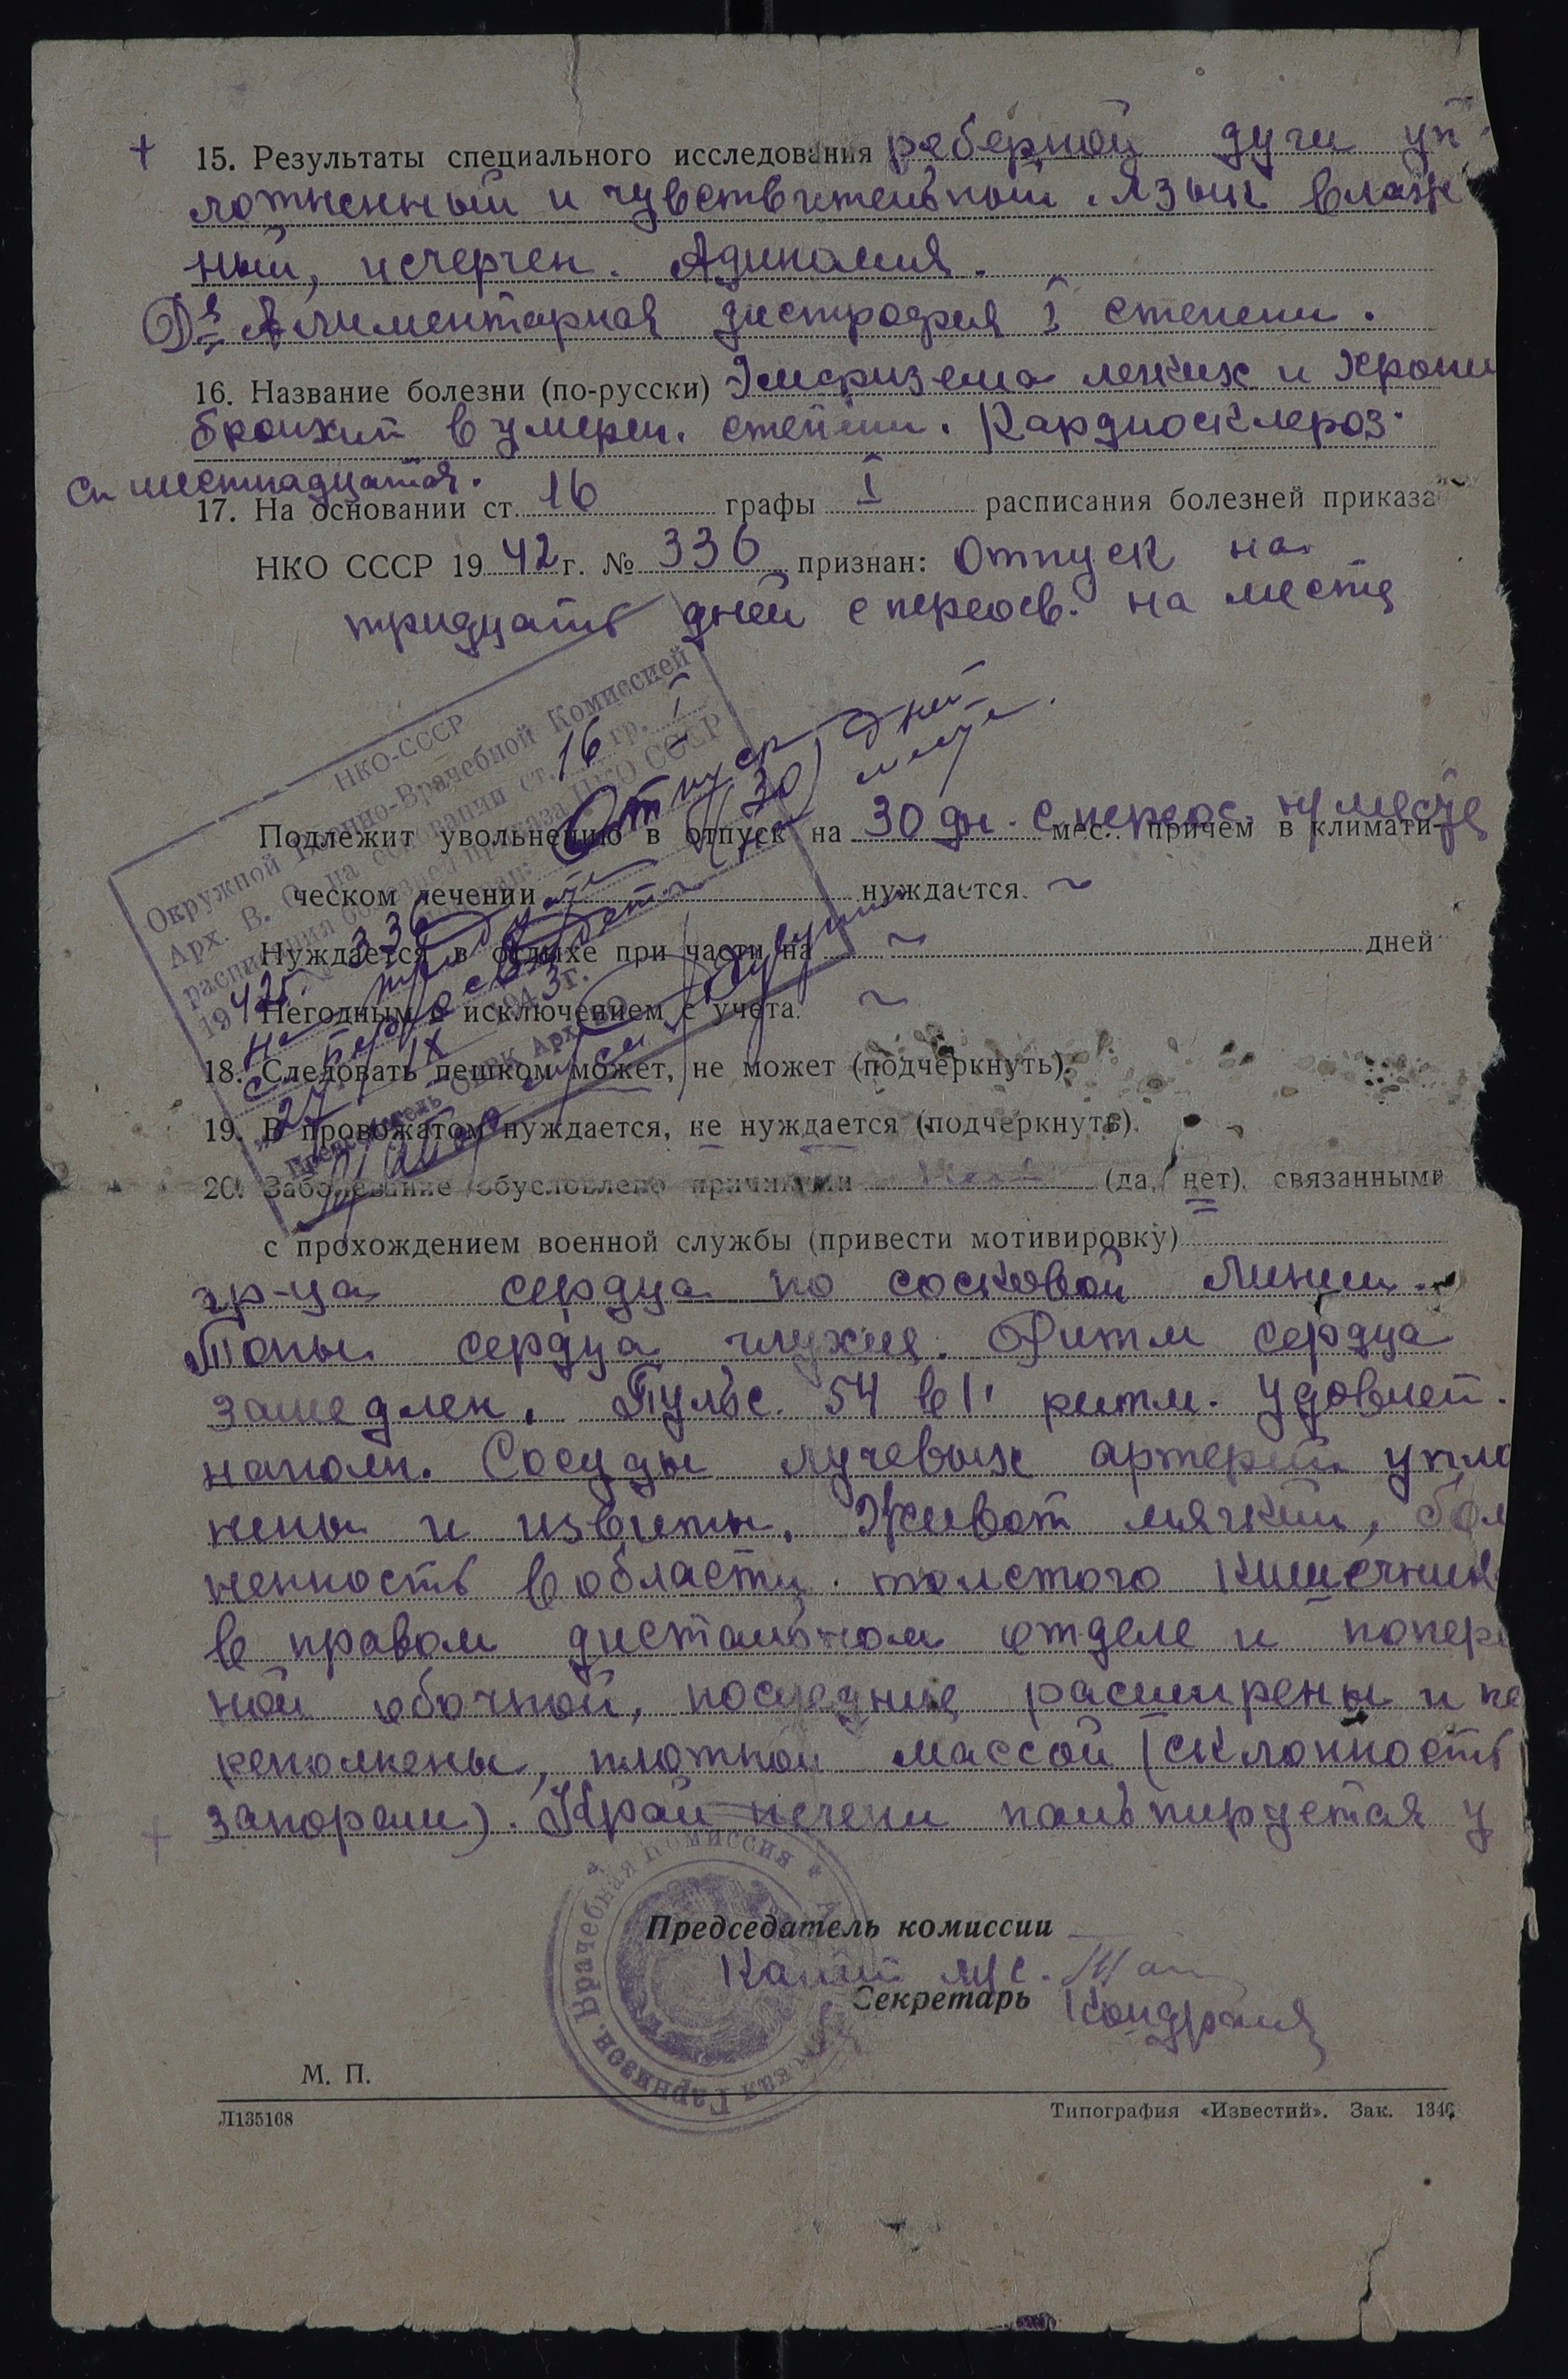 + 15. Результаты специального исследования реберной дуги уп
лотненный и чувствительный. Язык влаж
ный, исчерчен. Адинамия.
Дз Алиментарная дистрофия I степени.
16. Название болезни (по-русски) Эмфизема легких и хрони
бронхит в умерен. степени. Кардиосклероз.
Ст шестнадцатая.
17. На основании ст. 16 графы I расписания болезней приказа
НКО СССР 1942 г. № 336 признан: Отпуск на
тридцать дней с переосв. на месте
НКО-СССР
Окружной Военно-Врачебной Комиссией
Арх. В. О. на основании ст. 16 гр. I
расписания болезней приказа НКО СССР
1942 г. № 336 признан: Отпуск
на тридцать (30) дней
с переосвидет. на месте.
"27" IX 1943 г.
Председатель ОВВК Арх. ВО
Подлежит увольнению в отпуск на 30 дн. с переос. на месте мес. причем в климати-
ческом лечении нуждается. ~
Нуждается в отдыхе при части на ~ дней
Негодным с исключением с учета. ~
18. Следовать пешком может, не может (подчеркнуть).
19. В провожатом нуждается, не нуждается (подчеркнуть).
20. Заболевание обусловлено причинами (да, нет), связанными
с прохождением военной службы (привести мотивировку)
гр-ца сердца по сосковой линии.
Тоны сердца глухие. Ритм сердца
замедлен. Пульс 54 в 1' ритм. удовлет.
наполн. Сосуды лучевых артерий упло
нены и извиты. Живот мягкий, бол
ненность в области толстого кишечник
в правом дистальном отделе и попере
ной ободочной, последние расширены и пе
реполнены, плотной массой (склонность
запорам). Край печени пальпируется у
Председатель комиссии
Капит м/с.
Секретарь
Врачебная Комиссия
Гарнизон.
М. П.
Л135168
Типография «Известий». Зак. 1346